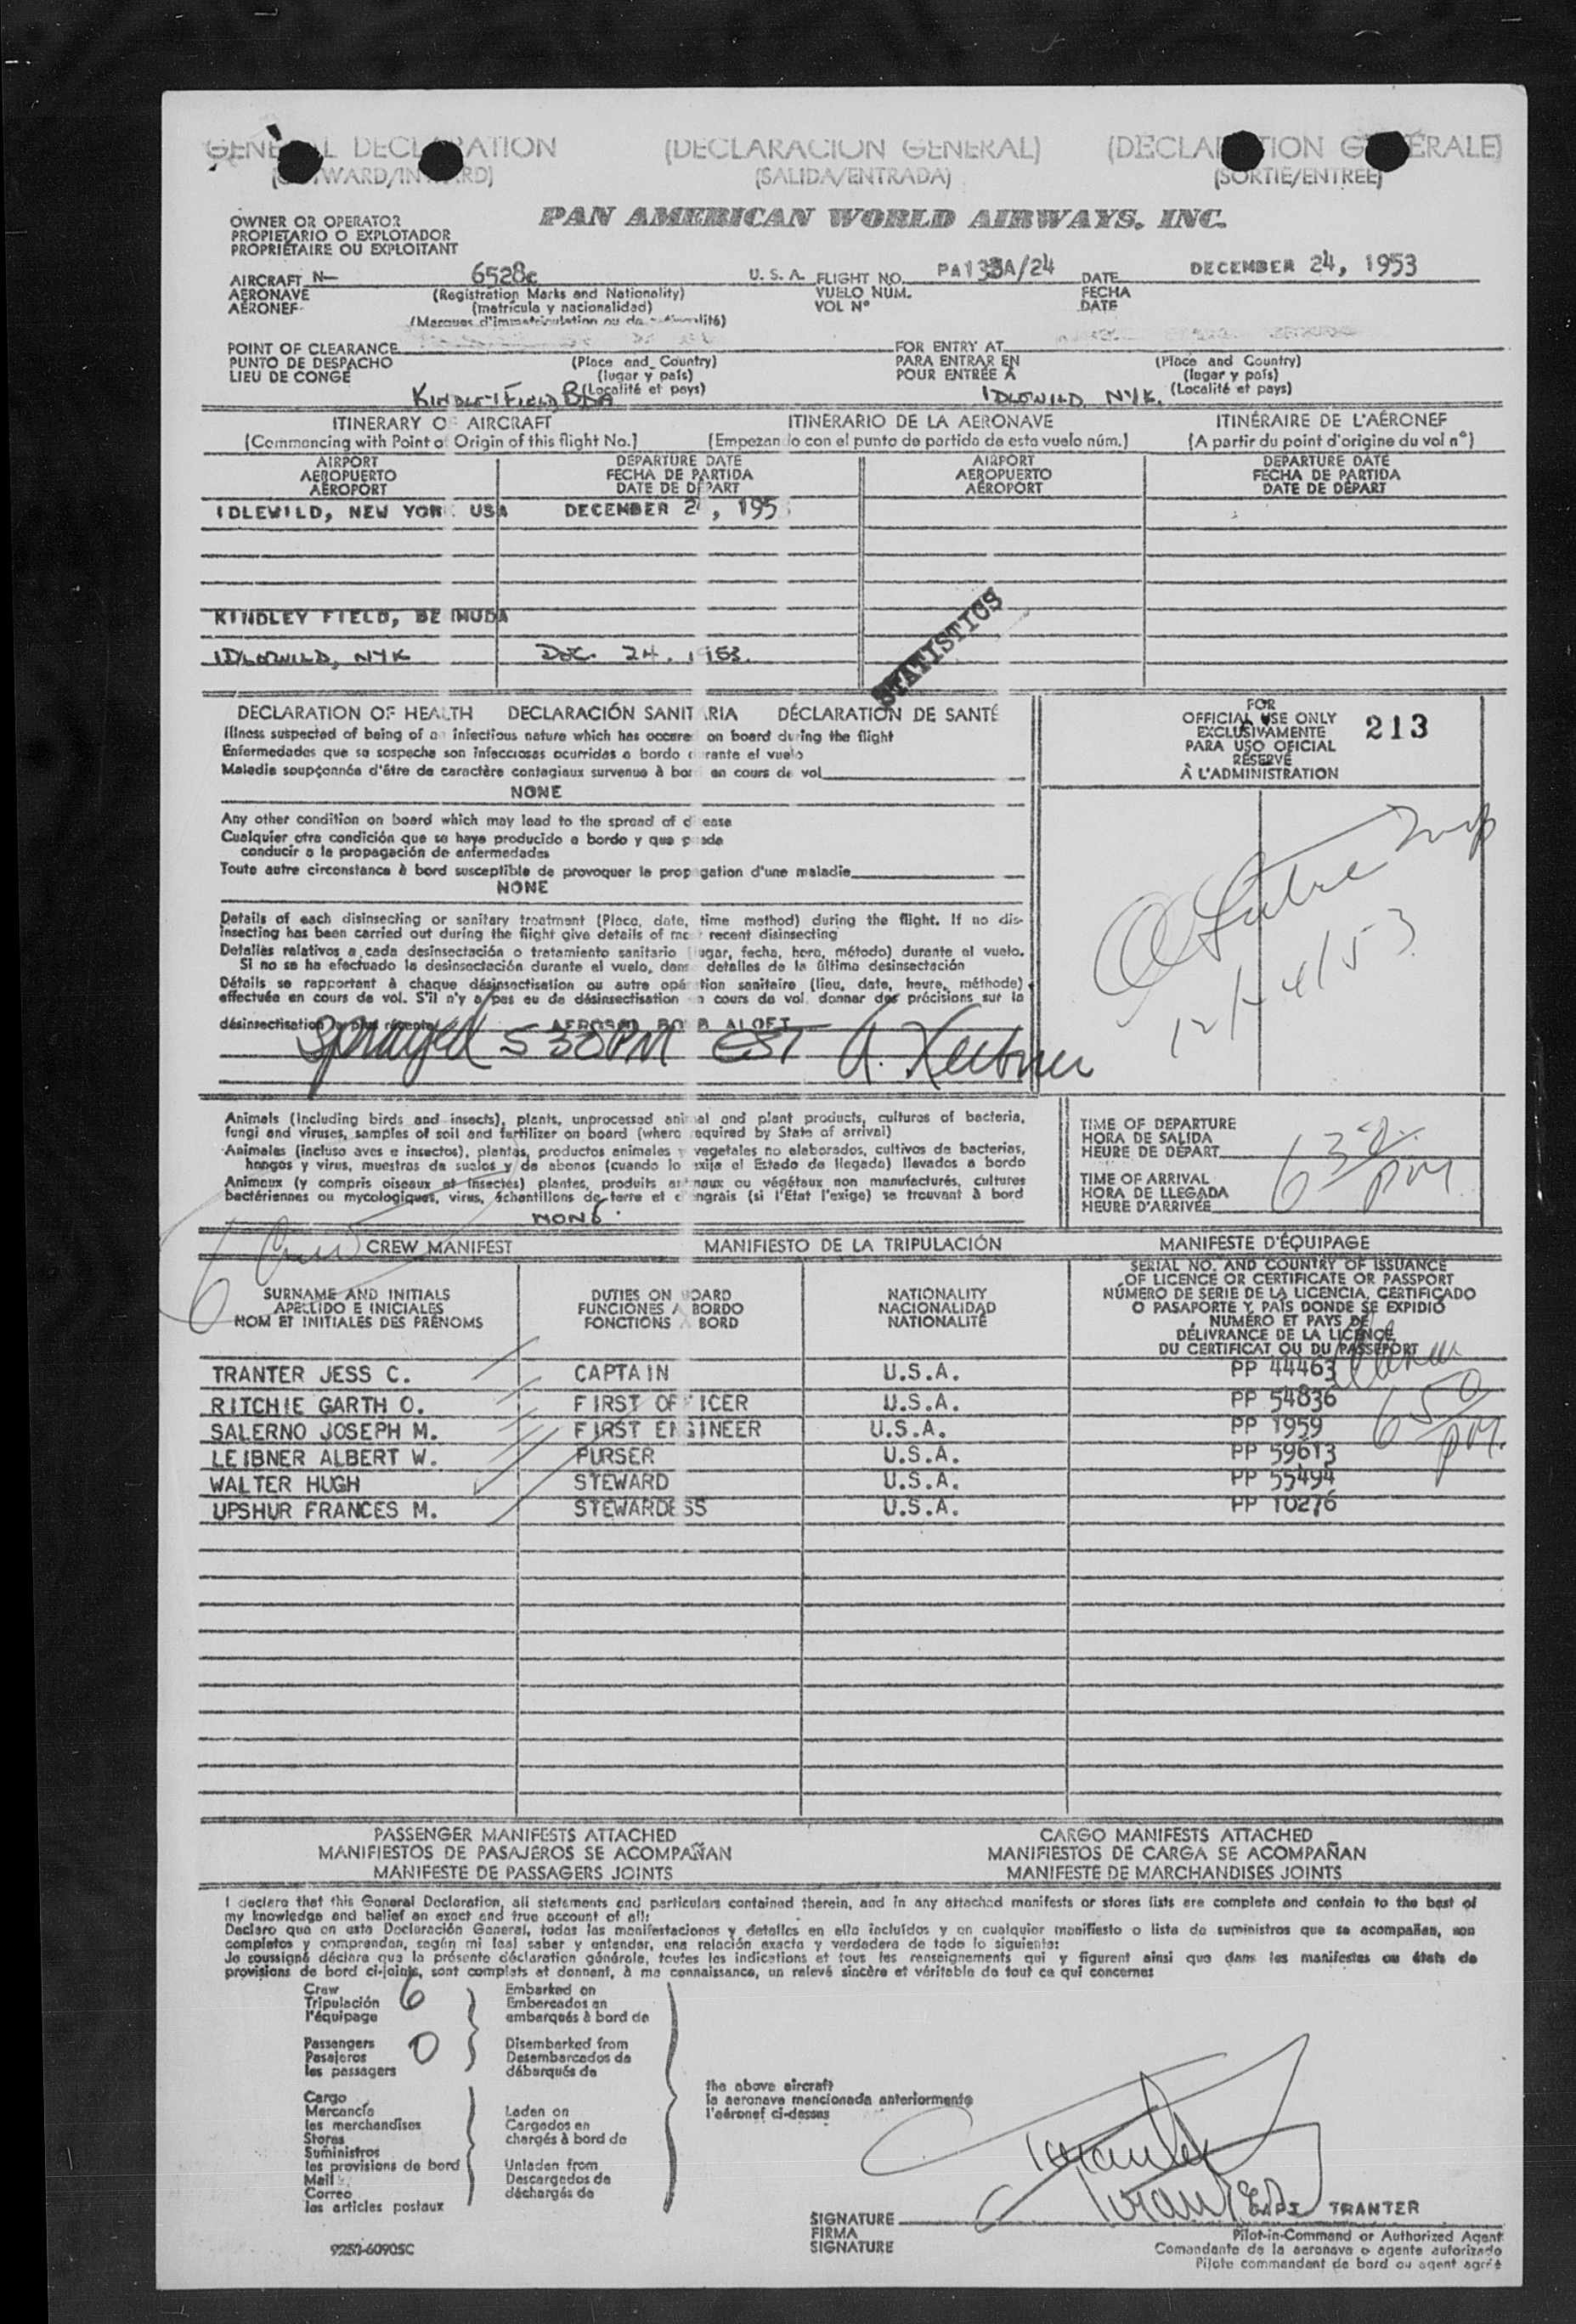 GENERAL DECLARATION (DECLARACION GENERAL) (DÉCLARATION GÉNÉRALE)
(OUTWARD/INWARD) (SALIDA/ENTRADA) (SORTIE/ENTREE)
OWNER OR OPERATOR PAN AMERICAN WORLD AIRWAYS, INC.
PROPIETARIO O EXPLOTADOR
PROPRIÉTAIRE OU EXPLOITANT
AIRCRAFT N— 6528c U. S. A. FLIGHT NO. PA133A/24 DATE DECEMBER 24, 1953
AERONAVE (Registration Marks and Nationality) VUELO NÚM. FECHA
AÉRONEF (matrícula y nacionalidad) VOL N° DATE
(Marques d'immatriculation ou de nationalité)
POINT OF CLEARANCE FOR ENTRY AT
PUNTO DE DESPACHO (Place and Country) PARA ENTRAR EN (Place and Country)
LIEU DE CONGÉ (lugar y país) POUR ENTRÉE À (lugar y país)
KINDLEY FIELD, BDA (Localité et pays) IDLEWILD, NYK. (Localité et pays)
ITINERARY OF AIRCRAFT ITINERARIO DE LA AERONAVE ITINÉRAIRE DE L'AÉRONEF
(Commencing with Point of Origin of this flight No.) (Empezando con el punto de partida de esta vuelo núm.) (A partir du point d'origine du vol n°)
AIRPORT DEPARTURE DATE AIRPORT DEPARTURE DATE
AEROPUERTO FECHA DE PARTIDA AEROPUERTO FECHA DE PARTIDA
AÉROPORT DATE DE DÉPART AÉROPORT DATE DE DÉPART
IDLEWILD, NEW YORK USA DECEMBER 2 , 195
KINDLEY FIELD, BERMUDA
IDLEWILD, NYK DEC. 24. 1953.
STATISTICS
DECLARATION OF HEALTH DECLARACIÓN SANITARIA DÉCLARATION DE SANTÉ
Illness suspected of being of an infectious nature which has occured on board during the flight
Enfermedades que se sospecha son infecciosas ocurridas a bordo durante el vuelo
Maladie soupçonnée d'être de caractère contagieux survenue à bord en cours de vol
NONE
FOR
OFFICIAL USE ONLY 213
EXCLUSIVAMENTE
PARA USO OFICIAL
RÉSERVÉ
À L'ADMINISTRATION
Any other condition on board which may lead to the spread of disease
Cualquier otra condición que se haya producido a bordo y que pueda
conducir a la propagación de enfermedades
Toute autre circonstance à bord susceptible de provoquer la propagation d'une maladie
NONE
Details of each disinsecting or sanitary treatment (Place, date, time method) during the flight. If no dis-
insecting has been carried out during the flight give details of most recent disinsecting
Detalles relativos a cada desinsectación o tratamiento sanitario (lugar, fecha, hora, método) durante el vuelo.
Si no se ha efectuado la desinsectación durante el vuelo, dense detalles de la última desinsectación
Détails se rapportant à chaque désinsectisation ou autre opération sanitaire (lieu, date, heure, méthode)
effectuée en cours de vol. S'il n'y a pas eu de désinsectisation en cours de vol, donner des précisions sur la
désinsectisation la plus récente AEROSOL BOMB ALOFT
Sprayed 530PM EST A. Leibner
12/24/53
Animals (including birds and insects), plants, unprocessed animal and plant products, cultures of bacteria,
fungi and viruses, samples of soil and fertilizer on board (where required by State of arrival)
Animales (incluso aves e insectos), plantas, productos animales y vegetales no elaborados, cultivos de bacterias,
hongos y virus, muestras de suelos y de abonos (cuando lo exija el Estado de llegada) llevados a bordo
Animaux (y compris oiseaux et insectes) plantes, produits animaux ou végétaux non manufacturés, cultures
bactériennes ou mycologiques, virus, échantillons de terre et d'engrais (si l'État l'exige) se trouvant à bord
NONE
TIME OF DEPARTURE
HORA DE SALIDA
HEURE DE DÉPART
TIME OF ARRIVAL
HORA DE LLEGADA
HEURE D'ARRIVÉE
6 30 PM
6 Crew
CREW MANIFEST MANIFIESTO DE LA TRIPULACIÓN MANIFESTE D'ÉQUIPAGE
SURNAME AND INITIALS DUTIES ON BOARD NATIONALITY
APELLIDO E INICIALES FUNCIONES A BORDO NACIONALIDAD
NOM ET INITIALES DES PRÉNOMS FONCTIONS A BORD NATIONALITÉ
SERIAL NO. AND COUNTRY OF ISSUANCE
OF LICENCE OR CERTIFICATE OR PASSPORT
NÚMERO DE SERIE DE LA LICENCIA, CERTIFICADO
O PASAPORTE Y PAÍS DONDE SE EXPIDIÓ
NUMÉRO ET PAYS DE
DÉLIVRANCE DE LA LICENCE
DU CERTIFICAT OU DU PASSEPORT
TRANTER JESS C. CAPTAIN U.S.A. PP 44463
RITCHIE GARTH O. FIRST OFFICER U.S.A. PP 54836
SALERNO JOSEPH M. FIRST ENGINEER U.S.A. PP 1959
LEIBNER ALBERT W. PURSER U.S.A. PP 59613
WALTER HUGH STEWARD U.S.A. PP 55494
UPSHUR FRANCES M. STEWARDESS U.S.A. PP 10276
6 50 PM.
PASSENGER MANIFESTS ATTACHED CARGO MANIFESTS ATTACHED
MANIFIESTOS DE PASAJEROS SE ACOMPAÑAN MANIFIESTOS DE CARGA SE ACOMPAÑAN
MANIFESTE DE PASSAGERS JOINTS MANIFESTE DE MARCHANDISES JOINTS
I declare that this General Declaration, all statements and particulars contained therein, and in any attached manifests or stores lists are complete and contain to the best of
my knowledge and belief an exact and true account of all:
Declaro que en esta Declaración General, todas las manifestaciones y detalles en ella incluídos y en cualquier manifiesto o lista de suministros que se acompañan, son
completos y comprenden, según mi leal saber y entender, una relación exacta y verdadera de todo lo siguiente:
Je soussigné déclare que la présente déclaration générale, toutes les indications et tous les renseignements qui y figurent ainsi que dans les manifestes ou états de
provisions de bord ci-joints, sont complets et donnent, à ma connaissance, un relevé sincère et véritable de tout ce qui concerne:
Crew Embarked on
Tripulación 6 Embarcados en
l'équipage embarqués à bord de
Passengers Disembarked from
Pasajeros 0 Desembarcados de
les passagers débarqués de
the above aircraft
la aeronave mencionada anteriormente
l'aéronef ci-dessus
Cargo
Mercancía Laden on
les merchandises Cargados en
Stores chargés à bord de
Suministros
les provisions de bord Unladen from
Mail Descargados de
Correo déchargés de
les articles postaux
Tranter
Tranter
SIGNATURE CAPT TRANTER
FIRMA Pilot-in-Command or Authorized Agent
SIGNATURE Comandante de la aeronave o agente autorizado
Pilote commandant de bord ou agent agréé
9253-60905C